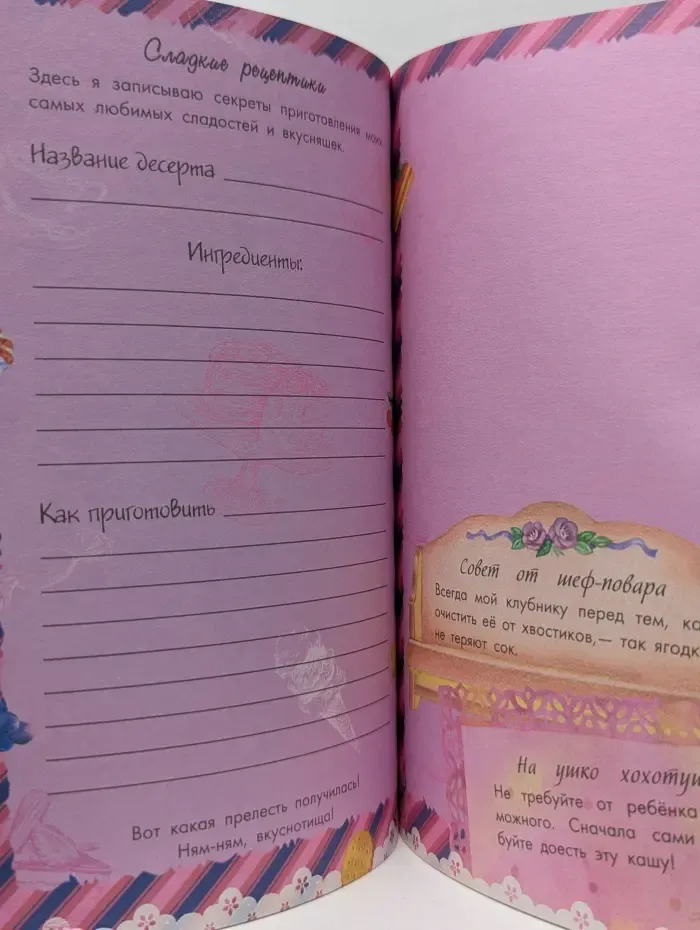 Сладкие рецептики
Здесь я записываю секреты приготовления моих
самых любимых сладостей и вкусняшек.
Название десерта
Ингредиенты:
Как приготовить
Вот какая прелесть получилась!
Ням-ням, вкуснотища!
Совет от шеф-повара
Всегда мой клубнику перед тем, ка
очистить её от хвостиков,— так ягодк
не теряют сок.
На ушко хохотуш
Не требуйте от ребёнка
можного. Сначала сами
буйте доесть эту кашу!